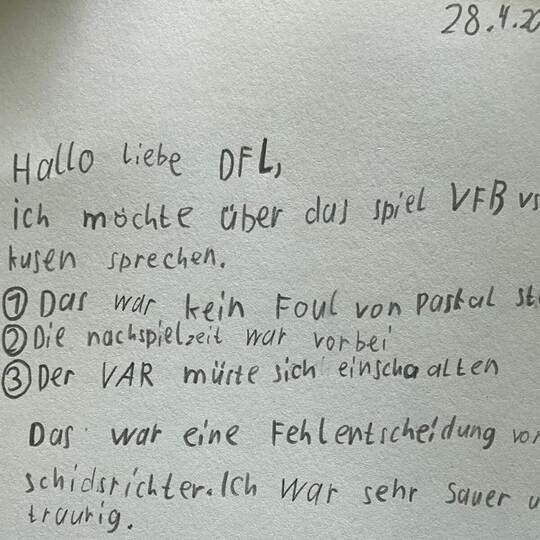 28.4.20
Hallo liebe DFL,
ich möchte über das spiel VFB vs
kusen sprechen.
① Das war kein Foul von Paskal st
② Die nachspielzeit war vorbei
③ Der VAR müste sich einschaalten
Das war eine Fehlentscheidung vo
schidsrichter. Ich war sehr sauer u
traurig.